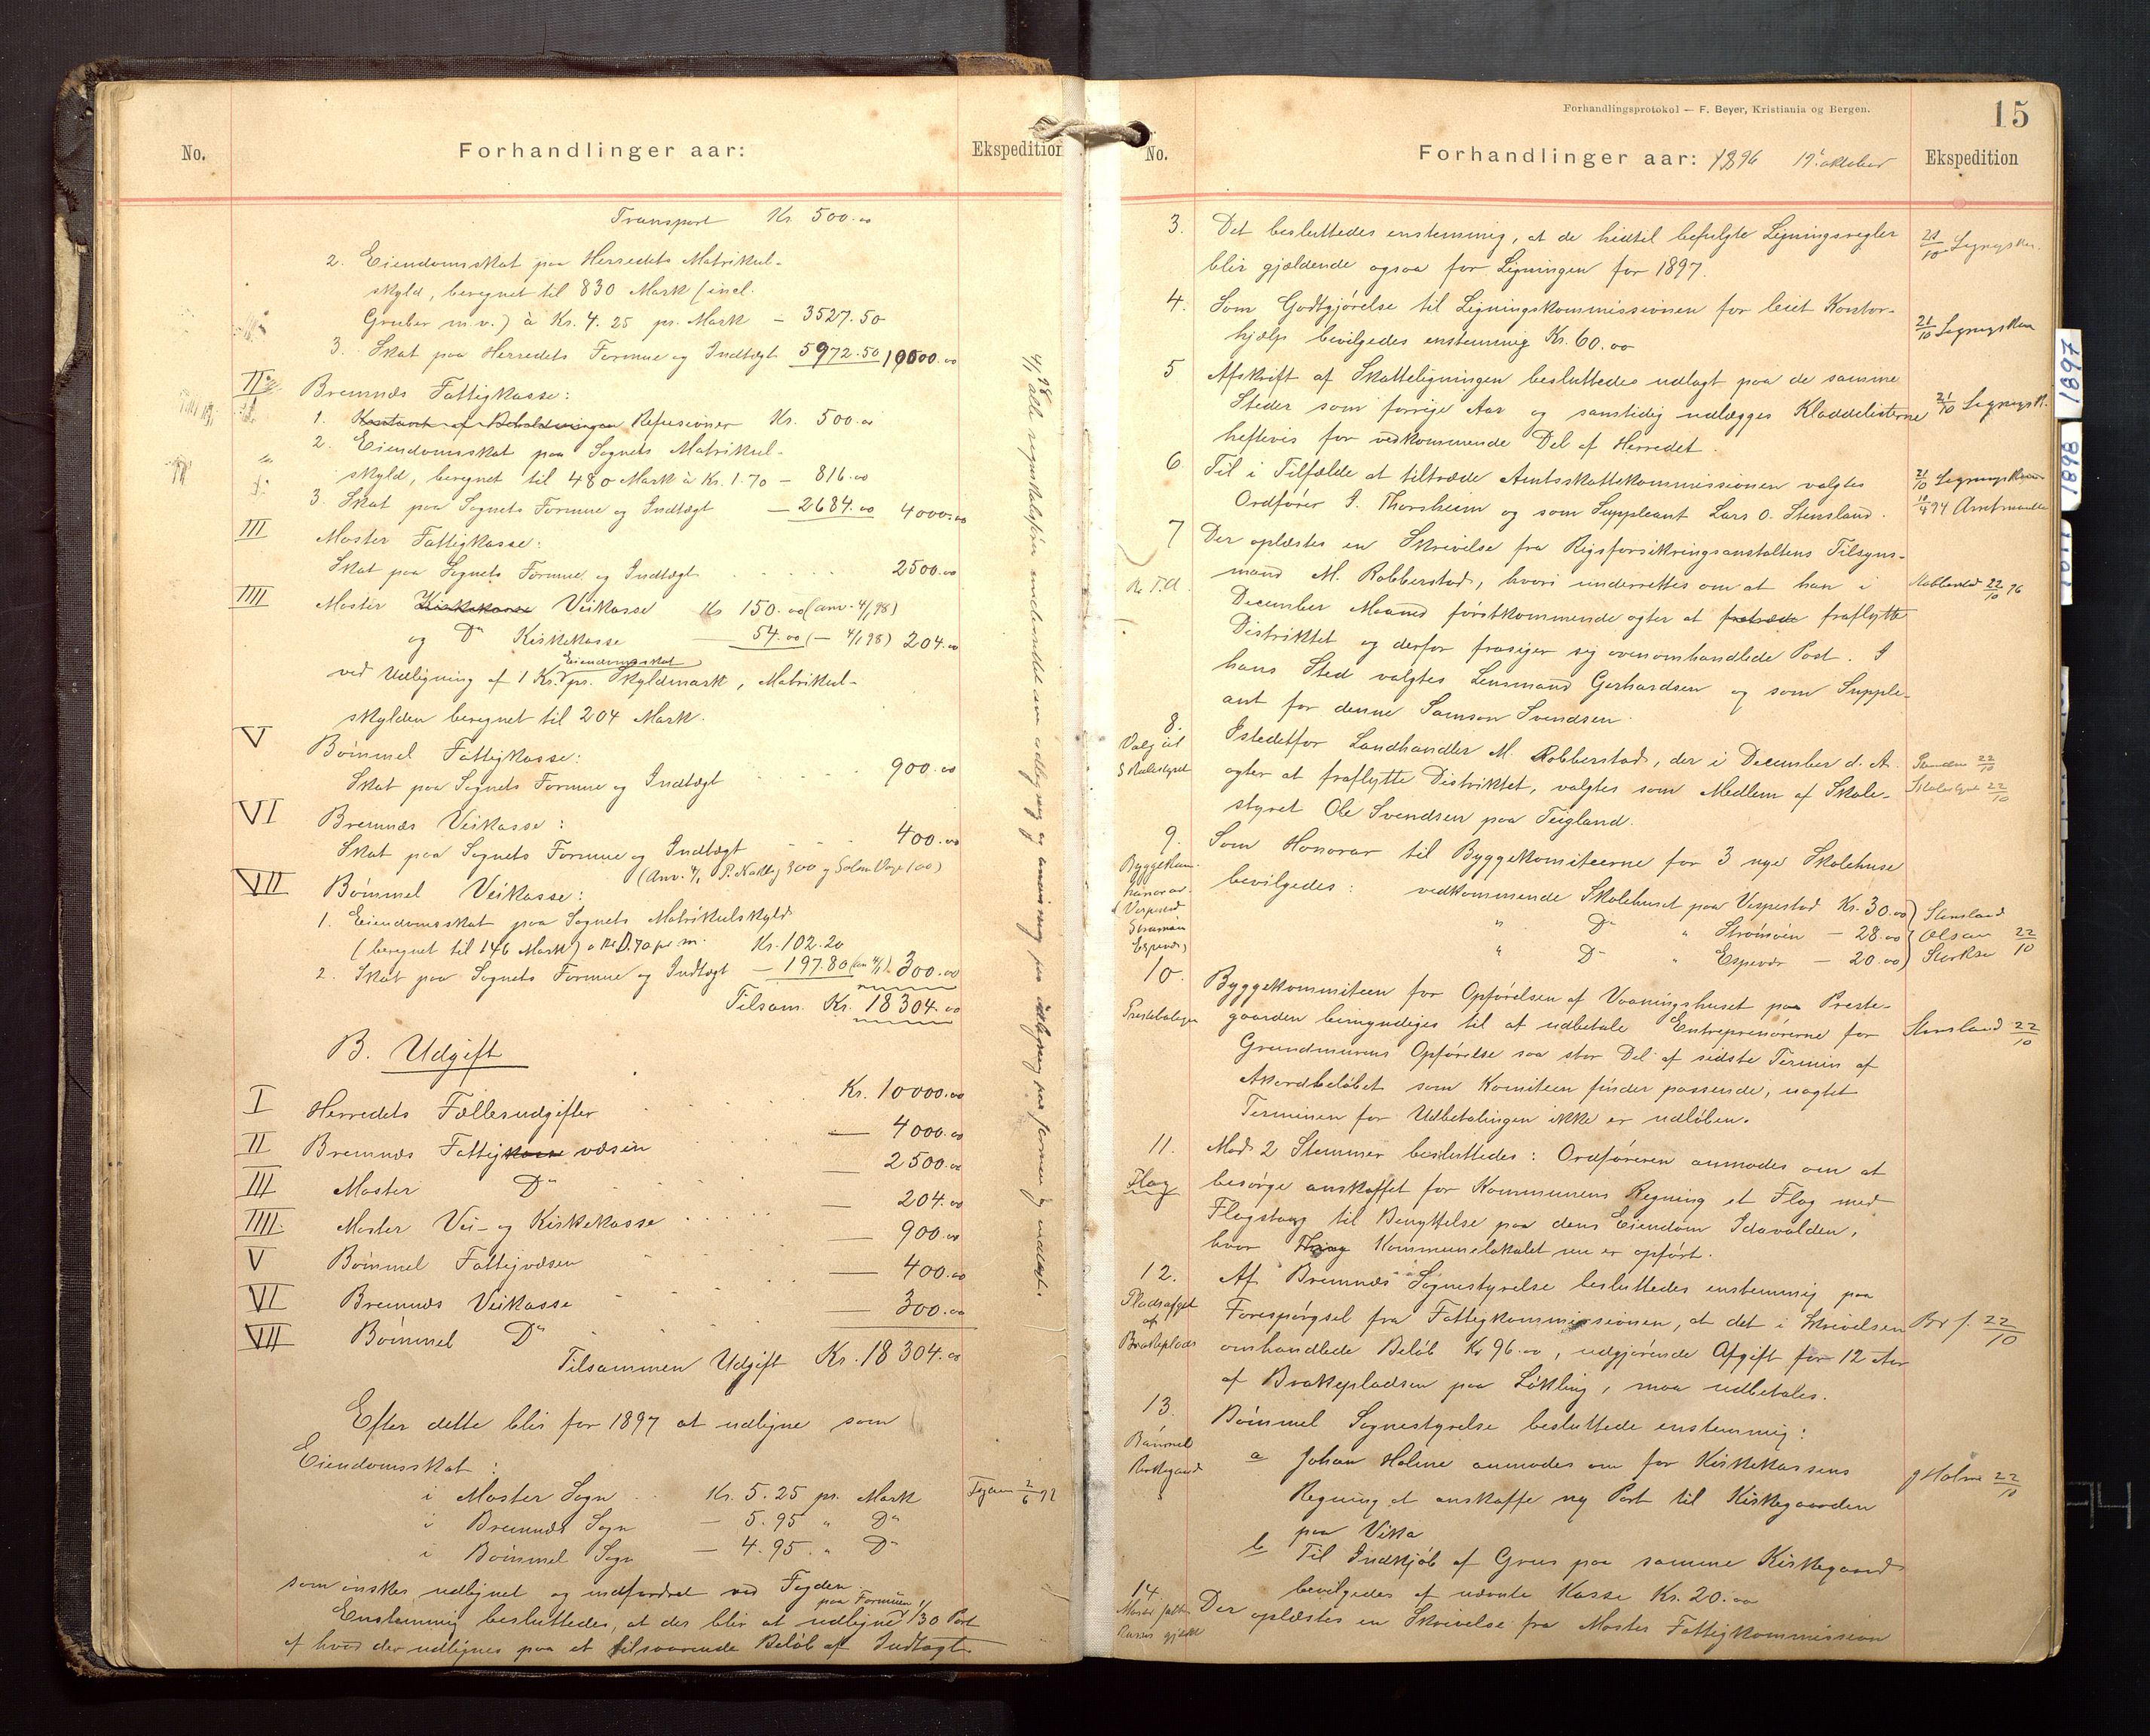 No.
Forhandlinger aar:
Ekspedition
Transport Kr. 500.00
2. Eiendomsskat paa Herredets Matrikul-
skyld, beregnet til 830 Mark (incl.
Gruber m.v.) à Kr. 4.25 pr. Mark – 3527.50
3. Skat paa Herredets Formue og Indtægt 5972.50 10000.00
II Bremnæs Fattigkasse:
1. Refusioner Kr. 500.00
2. Eiendomsskat paa Sognets Matrikul-
skyld, beregnet til 480 Mark à Kr. 1.70 – 816.00
3. Skat paa Sognets Formue og Indtægt – 2684.00 4000.00
III Moster Fattigkasse:
Skat paa Sognets Formue og Indtægt 2500.00
IIII Moster Kirkekasse Veikasse Kr 150.00 (anv. 4/1 98)
og Do Kirkekasse — 54.00 (— 4/1 98) 204.00
Eiendomsskat
ved Udligning af 1 Kr. pr. Skyldmark, Matrikul-
skylden beregnet til 204 Mark.
V Bømmel Fattigkasse:
Skat paa Sognets Formue og Indtægt 900.00
VI Bremnæs Veikasse:
Skat paa Sognets Formue og Indtægt 400.00
VII Bømmel Veikasse:
1. Eiendomsskat paa Sognets Matrikulskyld
(beregnet til 146 Mark) a Kr 0.70 pr m. Kr. 102.20
2. Skat paa Sognets Formue og Indtægt – 197.80 300.00
Tilsam. Kr. 18304.00
B. Udgift
I Herredets Fællesudgifter Kr. 10000.00
II Bremnæs Fattigkasse væsen — 4000.00
III Moster Do — 2500.00
IIII Moster Vei- og Kirkekasse — 204.00
V Bømmel Fattigvæsen — 900.00
VI Bremnæs Veikasse — 400.00
VII Bømmel Do — 300.00
Tilsammen Udgift Kr. 18304.00
Efter dette blir for 1897 at udligne som
Eiendomsskat:
i Moster Sogn Kr. 5.25 pr. Mark
i Bremnæs Sogn – 5.95 " Do
i Bømmel Sogn – 4.95 " Do
som ønskes udlignet og indfordret ved Fogden
paa Formuen
Enstemmig besluttedes, at der blir at udligne 1/30 Part
af hvad der udlignes paa et tilsvarende Beløb af Indtægt
Forhandlingsprotokol — F. Beyer, Kristiania og Bergen.
15
No.
Forhandlinger aar: 1896 19' oktober
Ekspedition
3. Det besluttedes enstemmig, at de hidtil befulgte Ligningsregler
blir gjældende ogsaa for Ligningen for 1897.
4. Som Godtgjørelse til Ligningskommissionen for leiet Kontor-
hjælp bevilgedes enstemmig Kr. 60.00
5 Afskrift af Skatteligningen besluttedes udlagt paa de samme
Steder som forrige Aar og samtidig udlægges Kladdelisterne
heftevis for vedkommende Del af Herredet.
6 Til i Tilfælde at tiltræde Amtsskattekommissionen valgtes
Ordfører I. Thorsheim og som Suppleant Lars O. Stensland.
7 Der oplæstes en Skrivelse fra Rigsforsikringsanstaltens Tilsyns-
mand M. Robberstad, hvori underrettes om at han i
December Maaned førstkommende agter at fratræde fraflytte
Distriktet og derfor frasiger sig ovenomhandlede Post. I
hans Sted valgtes Lensmand Gerhardsen og som Supple-
ant for denne Samson Svendsen.
8. Istedetfor Landhandler M. Robberstad, der i December d. A.
Valg til
agter at fraflytte Distriktet, valgtes som Medlem af Skole-
styret Ole Svendsen paa Teigland.
9. Som Honorar til Byggekomiteerne for 3 nye Skolehuse
bevilgedes: vedkommende Skolehuset paa Vespestad Kr. 30.00 Stensland
" Do " Strømøen – 28.00 Olsen 22/10
" Do " Espevær – 20.00
10. Byggekommiteen for Opførelsen af Vaaningshuset paa Preste-
gaarden bemyndiges til at udbetale Entreprenørerne for
Stensland 22/10
Grundmurens Opførelse saa stor Del af sidste Termin af
Akordbeløbet som Komiteen finder passende, uagtet
Terminen for Udbetalingen ikke er udløben.
11. Mod 2 Stemmer besluttedes: Ordføreren anmodes om at
Flag
besørge anskaffet for Kommunens Regning et Flag med
Flagstang til Benyttelse paa dens Eiendom Idavolden,
hvor Kommunelokalet nu er opført.
12. Af Bremnæs Sognestyrelse besluttedes enstemmig paa
Forespørgsel fra Fattigkommissionen, at det i Skrivelsen
Br f. 22/10
omhandlede Beløb Kr 96.00, udgjørende Afgift for 12 Aar
af Brakepladsen paa Løkling, maa udbetales.
13. Bømmel Sognestyrelse besluttede enstemmig:
a Johan Holme anmodes om for Kirkekassens
J Holme 22/10
Regning at anskaffe ny Port til Kirkegaarden
paa Vika
b Til Indkjøb af Grus paa samme Kirkegaard
bevilgedes af nævnte Kasse Kr. 20.00
14. Der oplæstes en Skrivelse fra Moster Fattigkommission
1897
1898